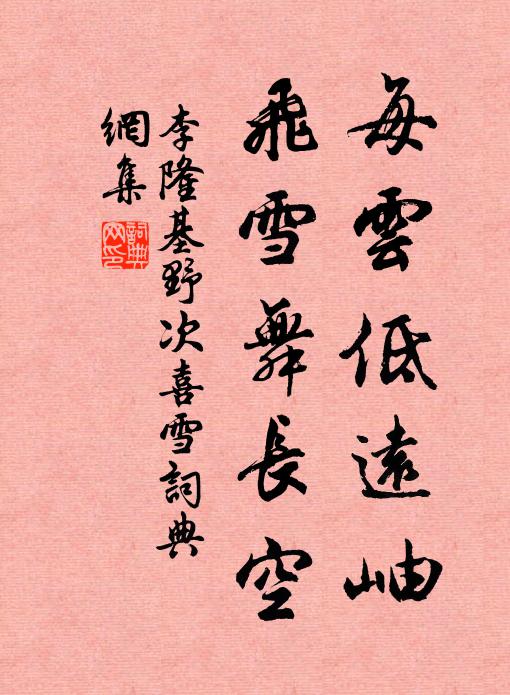 每雲低遠岫
飛雪舞長空
李隆基野次喜雪詞典
網集
詞典
网印